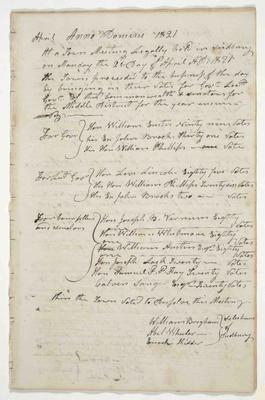 April Anno Domini 1821
At a Town Meeting Legally in Sudbury
on Monday the 2d Day of April AD 1821
the Town proceeded to the of the day
by bringing in their Votes for Govr Leut
Govr of this Commonwealth & Senators for
the Middle District for the year
For Gov
Hon William Ninty nine Votes
his Ex John Brooks Thirty one Votes
his Hon William Phillips one Vote
For Lut Gov
Hon Levi Lincoln Eighty five Votes
his Hon William Phillips Twenty Votes
his Ex John Brooks two Votes
For
and senators
Hon Joseph B. Varnum Eighty
Votes
Hon William Eighty
Votes
Hon William Austin Esqr Eighty
Votes
Hon Joseph Lock Twenty Votes
Hon Samuel P. P. Fay Twenty Votes
Calvin Sanger Esqr Twenty Votes
then the Town Voted to this Meeting
William Brigham
Abel Wheeler
Enoch Kidder
Selectmen
of
Sudbury